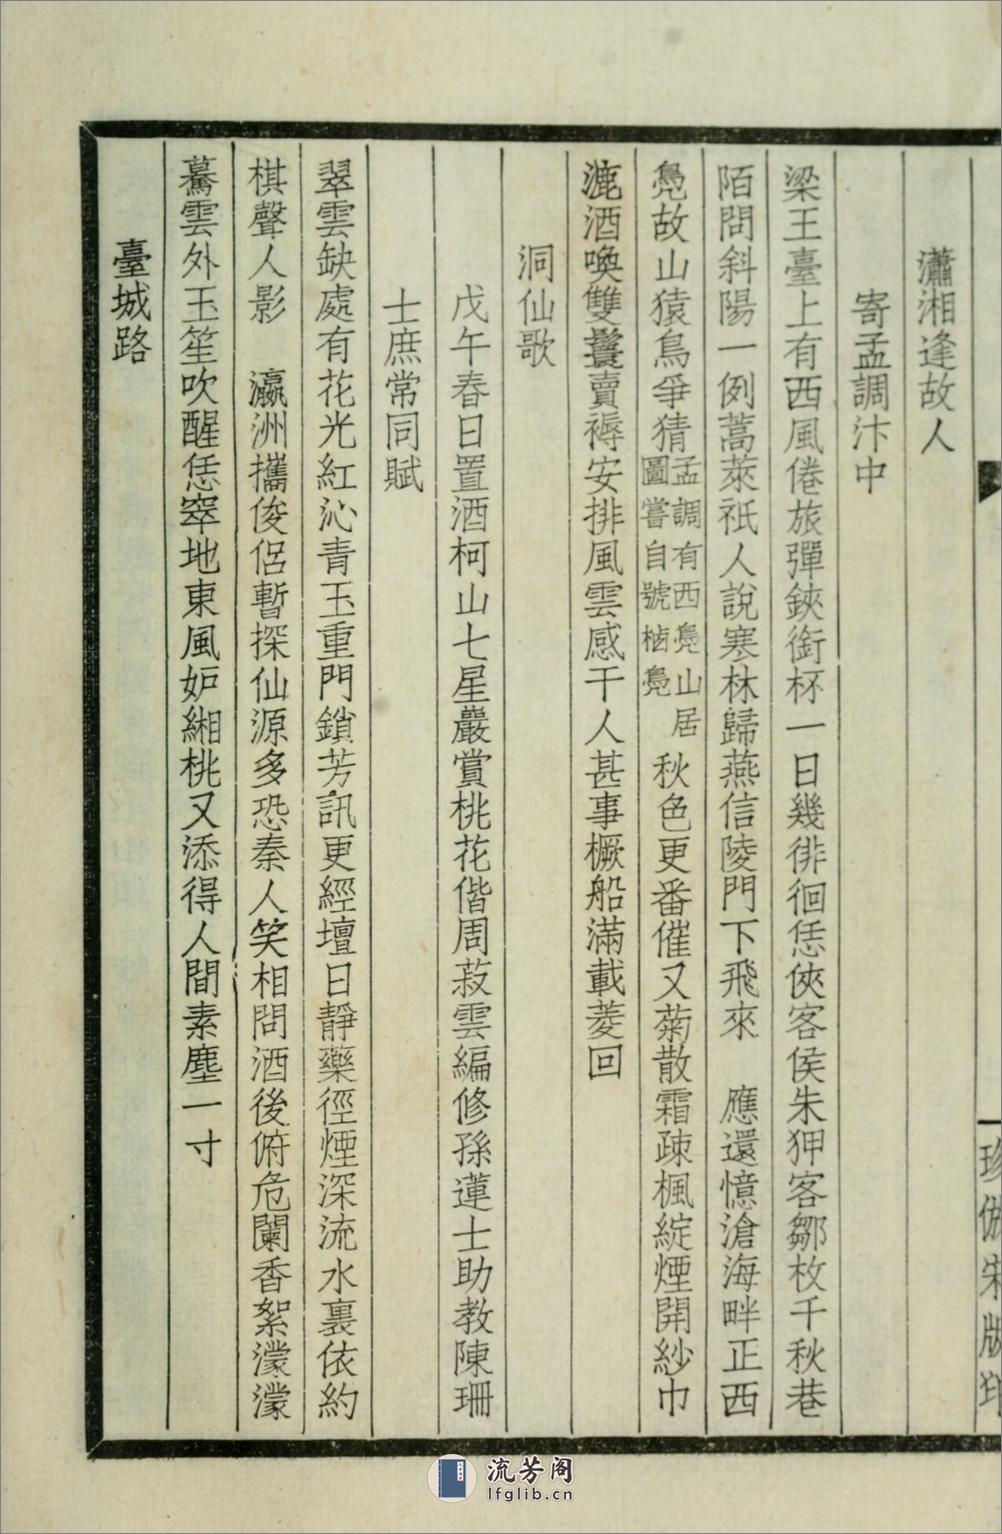 瀟湘逢故人
寄孟調汴中
梁王臺上有西風倦旅彈鋏銜杯一日幾徘徊恁俠客侯朱狎客鄒枚千秋巷
陌問斜陽一例蒿萊祇人說寒林歸燕信陵門下飛來　應還憶滄海畔正西
鳧故山猿鳥爭猜孟調有西鳧山居圖嘗自號樵鳧秋色更番催又菊散霜疎楓綻煙開紗巾
漉酒喚雙鬟賣褥安排風雲感干人甚事橛船滿載菱回
洞仙歌
戊午春日置酒柯山七星巖賞桃花偕周菽雲編修孫蓮士助教陳珊
士庶常同賦
翠雲缺處有花光紅沁青玉重門鎖芳訊更經壇日靜藥徑煙深流水裏依約
棋聲人影　瀛洲攜俊侶暫探仙源多恐秦人笑相問酒後俯危闌香絮濛濛
驀雲外玉笙吹醒恁窣地東風妒緗桃又添得人間素塵一寸
臺城路
珍倣宋版印
流芳阁
lfglib.cn